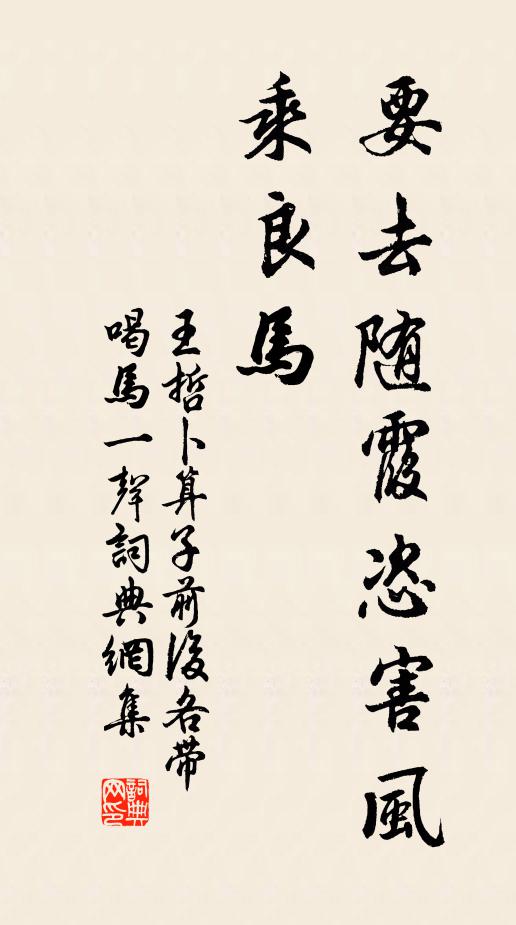 要去随霞恣害風
乘良馬
王哲卜算子前後各带
喝馬一聲詞典網集
詞典网印